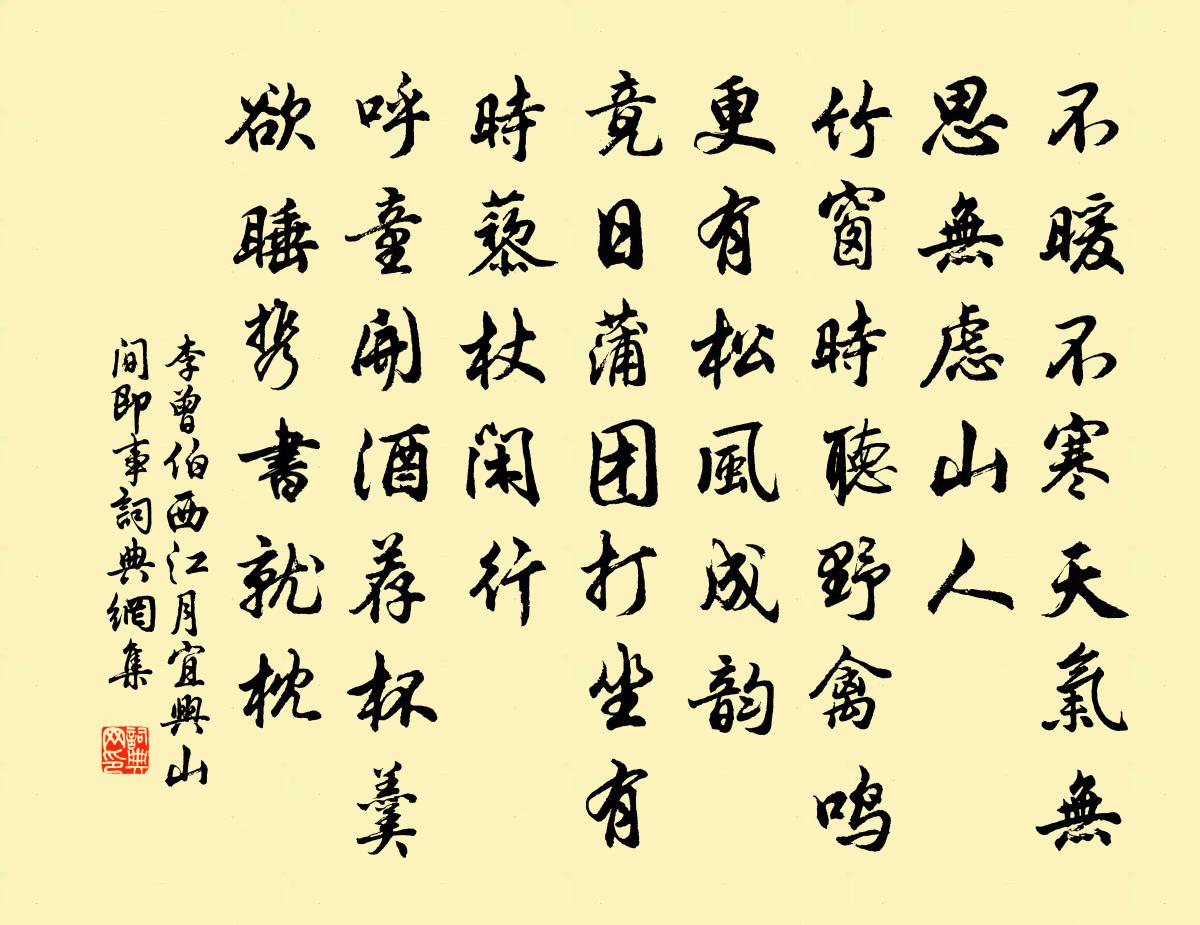 不暖不寒天氣無
思無慮山人
竹窗時聽野禽鸣
更有松風成韵
竟日蒲团打坐有
時藜杖闲行
呼童開酒荐杯羹
欲睡携書就枕
李曾伯西江月宜興山
间即事詞典網集
詞典网印